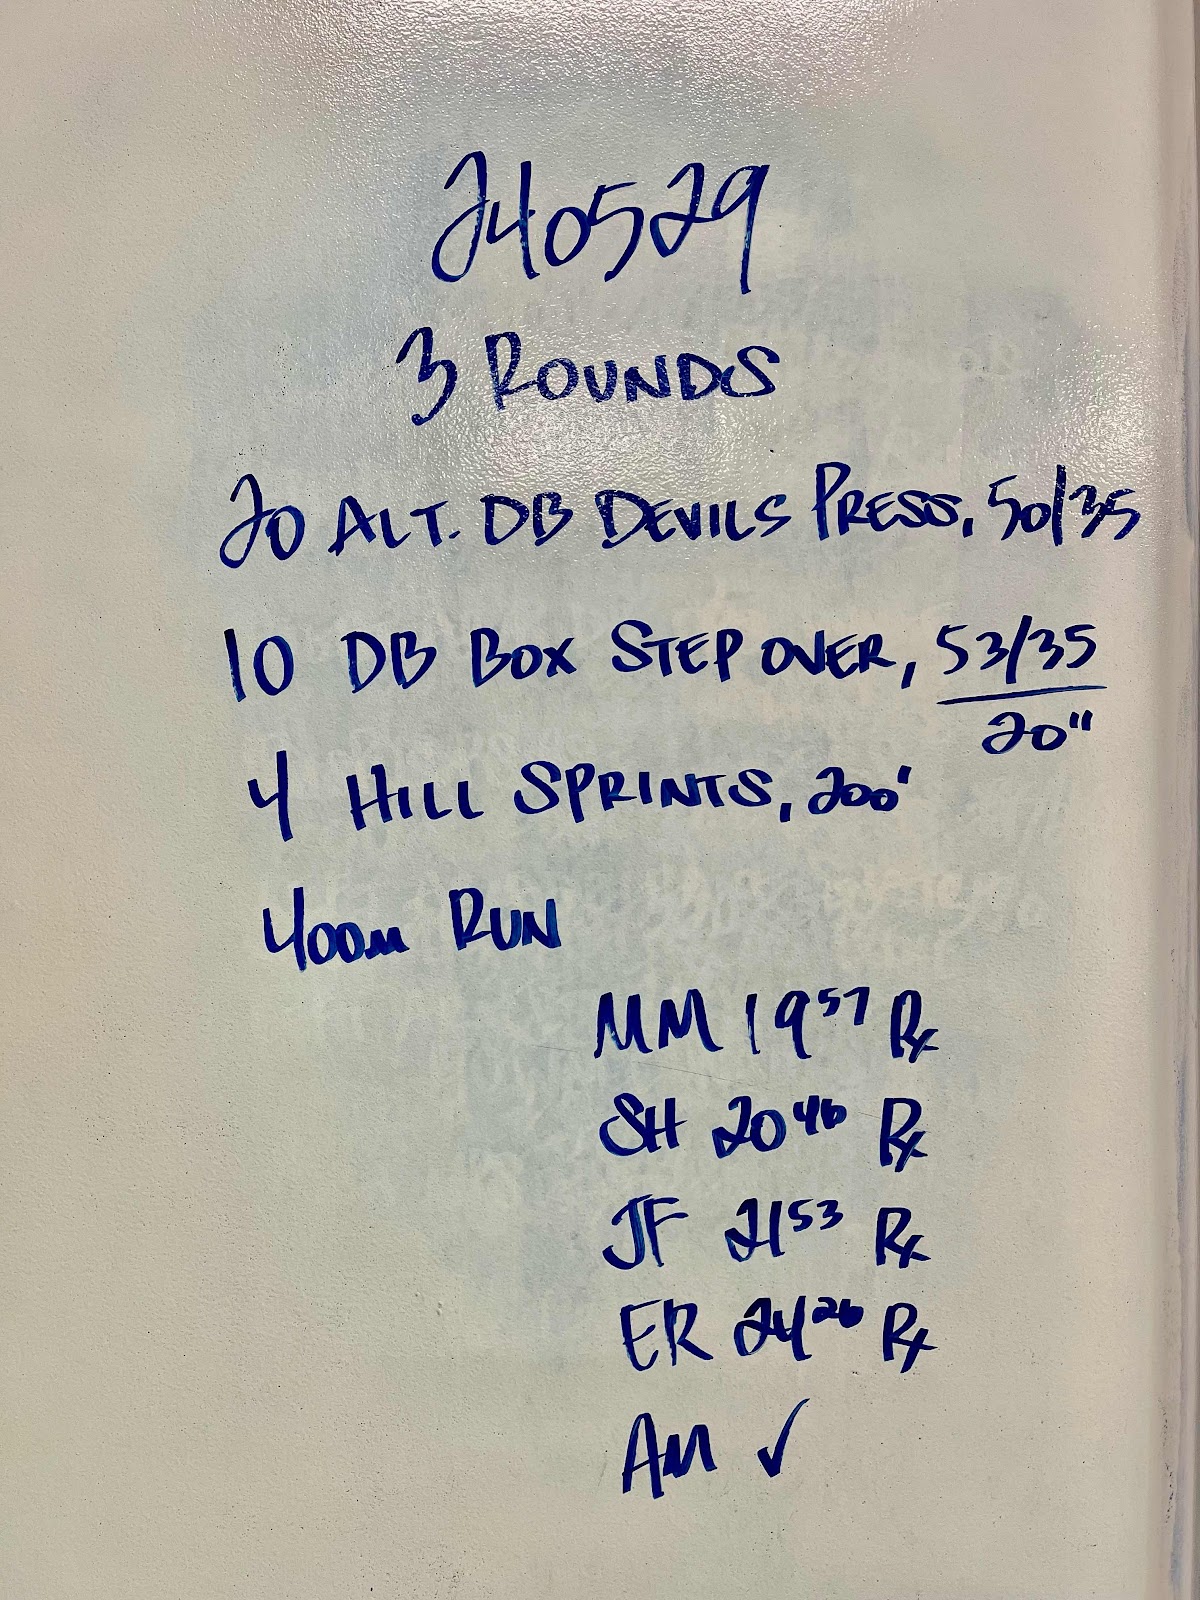 240529
3 ROUNDS
20 ALT. DB DEVILS PRESS, 50/35
10 DB BOX STEP OVER, 53/35
20"
4 HILL SPRINTS, 200'
400M RUN
MM 19 57 Rx
SH 20 46 Rx
JF 21 53 Rx
ER 24 26 Rx
AM ✓